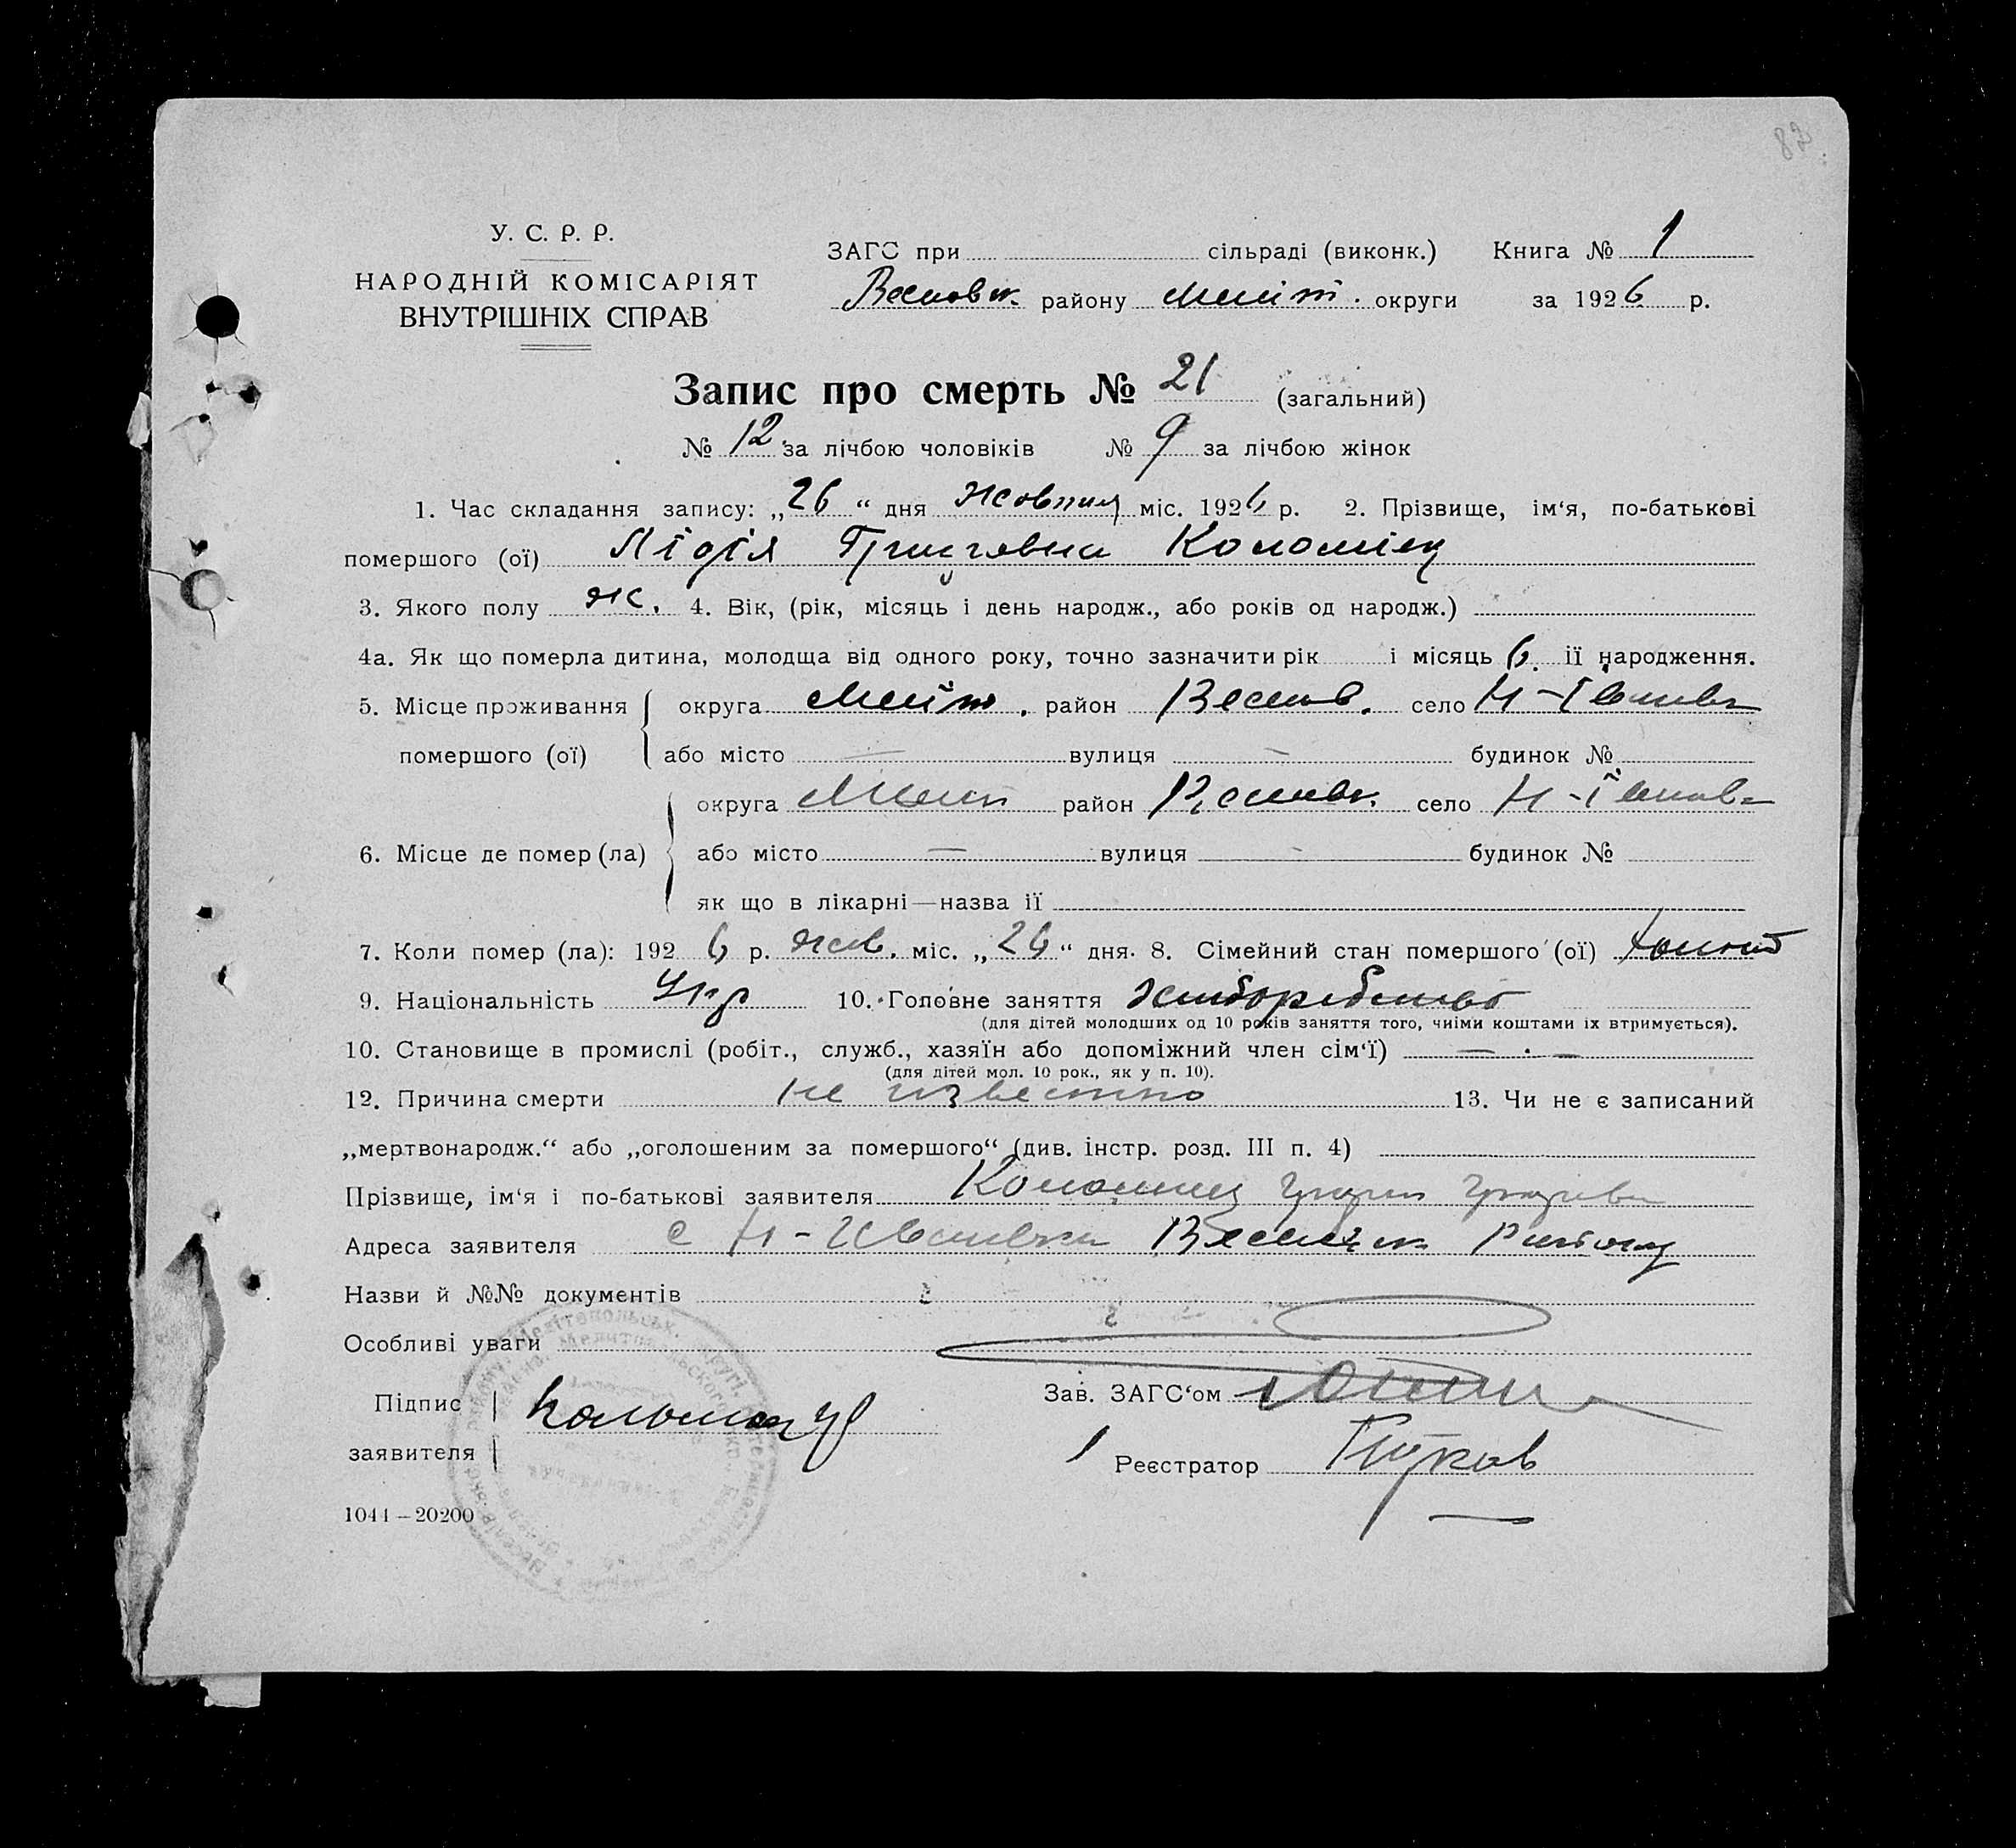 82
У. С. Р. Р.
НАРОДНІЙ КОМІСАРІЯТ
ВНУТРІШНІХ СПРАВ
ЗАГС при сільраді (виконк.) Книга № 1
району Меліт. округи за 1926 р.
Запис про смерть № 21 (загальний)
№ 12 за лічбою чоловіків № 9 за лічбою жінок
1. Час складання запису: „26“ дня Жовтня міс. 1926 р. 2. Прізвище, ім‘я, по-батькові
помершого (ої) Лідія Коломієц
3. Якого полу ж. 4. Вік, (рік, місяць і день народж., або років од народж.)
4а. Як що померла дитина, молодща від одного року, точно зазначити рік і місяць 6. її народження.
5. Місце проживання округа Меліт. район Весел. село Н-Іванівка
помершого (ої) або місто — вулиця — будинок №
округа Меліт район село Н-Іванівка
6. Місце де помер (ла) або місто — вулиця - будинок №
як що в лікарні—назва її
7. Коли помер (ла): 1926 р. жов. міс. „26“ дня. 8. Сімейний стан помершого (ої)
9. Національність Укр 10. Головне заняття хліборобство
(для дітей молодших од 10 років заняття того, чиїми коштами їх втримується).
10. Становище в промислі (робіт., служб., хазяїн або допоміжний член сім‘ї) — . —
(для дітей мол. 10 рок., як у п. 10).
12. Причина смерти не известно 13. Чи не є записаний
„мертвонародж.“ або „оголошеним за помершого“ (див. інстр. розд. III п. 4)
Прізвище, ім‘я і по-батькові заявителя Коломиец
Адреса заявителя с Н-Ивановка Району
Назви й №№ документів
Особливі уваги
Підпис
заявителя Коломиец
Зав. ЗАГС‘ом
Реєстратор
1044 – 20200